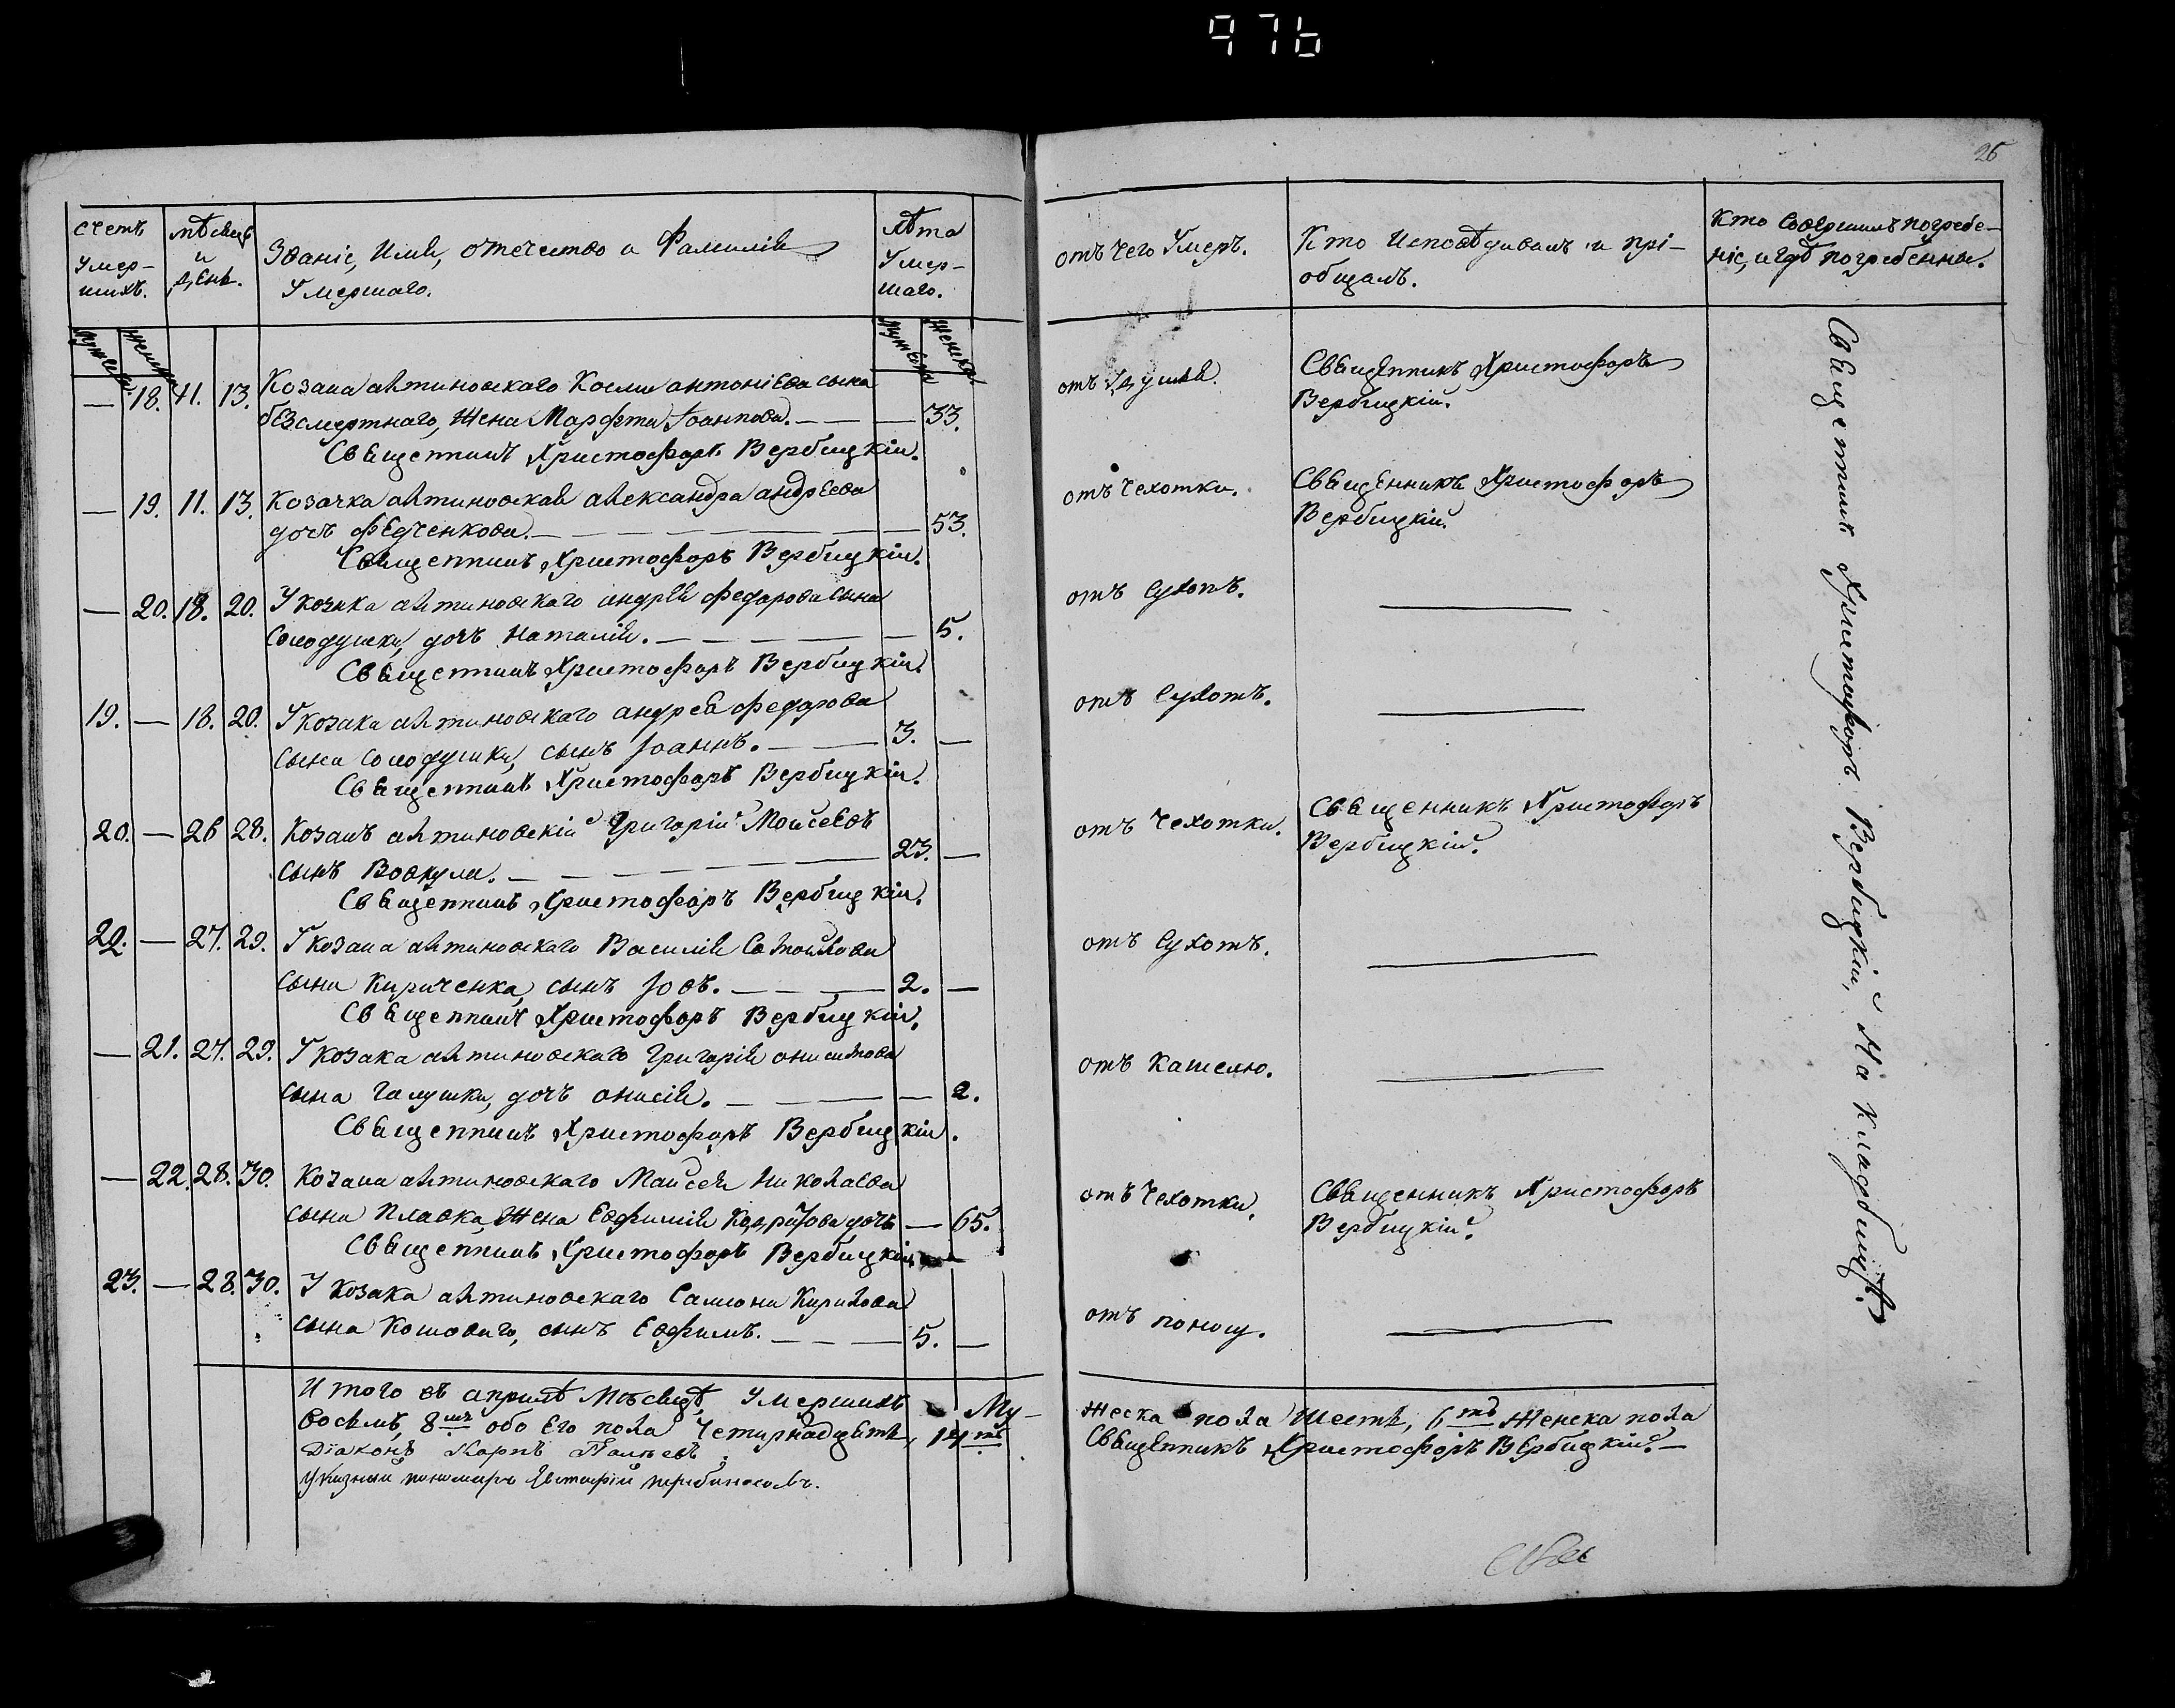 976
26
Счетъ Умер-
шихъ.
Мѣсяцъ
и
День.
Званіе, Имя, отечество и Фамилія
Умершаго.
Лѣта
Умер-
шаго.
отъ чего Умеръ.
Кто Исповѣдивалъ и прі-
общалъ.
Кто Совершилъ погребе-
ніе, и гдѣ погребенны.
Мужеска
Женска
Мужеска
Женска
— 18. 11. 13. Козака алтиновскаго Космы антоніева сына
безсмертнаго, Жена Марфта Іоаннова. — — — 33.
Священникъ Христофоръ Вербицкій.
отъ Удушья.
Священникъ Христофоръ
Вербицкій.
— 19. 11. 13. Козачка алтиновская александра андреева
дочь Федченкова. — — 53.
Священникъ Христофоръ Вербицкій.
отъ Чехотки.
Священникъ Христофоръ
Вербицкій.
— 20. 18. 20. У козака алтиновскаго андрея федорова сына
Солодушки, дочь Наталія. — — 5.
Священникъ Христофоръ Вербицкій.
отъ Сухотъ.
19. — 18. 20. У козака алтиновскаго андрея федорова
сына Солодушки, сынъ Іоаннъ. — 3. —
Священникъ Христофоръ Вербицкій.
отъ Сухотъ.
20. — 26 28. Козакъ алтиновскій Григорій Моисеевъ
сынъ Вовкула. — 23. —
Священникъ Христофоръ Вербицкій.
отъ Чехотки.
Священникъ Христофоръ
Вербицкій.
22. — 27. 29. У козака алтиновскаго Василія Самойлова
сына Кириченка, сынъ Іовъ. — 2. —
Священникъ Христофоръ Вербицкій.
отъ Сухотъ.
— 21. 27. 29. У козака алтиновскаго Григорія онисимова
сына Галушки, дочь онисія. — — 2.
Священникъ Христофоръ Вербицкій.
отъ Кашелю.
— 22. 28. 30. Козака алтиновскаго Моисея Николаева
сына Плавка, Жена Евфимія дочь — 65.
Священникъ Христофоръ Вербицкій.
отъ Чехотки.
Священникъ Христофоръ
Вербицкій.
23. — 28. 30. У Козака алтиновскаго Самсона Кирилова
сына Кошоваго, сынъ Евфимъ. — 5. —
отъ поносу.
Священникъ Христофоръ Вербицкій, На кладбищѣ.
Итого въ априлѣ Мѣсяцѣ, Умершихъ Му-
жеска пола Шесть, 6ть Женска пола
Восемь, 8мъ обоего пола Четырнадцять, 14ть
Священникъ Христофоръ Вербицкій. —
Діаконъ Карпъ
Указный пономарь Евстафій